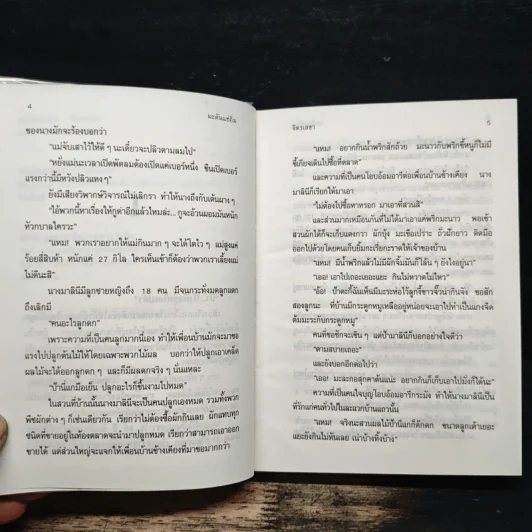 4
มะดันแช่อิ่ม
ของนางมักจะร้องบอกว่า
"แม่จับเสาไว้ให้ดีๆ นะเดี๋ยวจะปลิวตามลมไป"
"หยั่งแม่นะเวลาเปิดพัดลมต้องเปิดแค่เบอร์หนึ่ง ขืนเปิดเบอร์
แรงกว่านี้มีหวังปลิวแหงๆ"
ยังมีเสียงวิพากษ์วิจารณ์ไม่เลิกรา ทำให้นางถึงกับเต้นผางๆ
"ไอ้พวกนี้หาเรื่องให้กูด่าอีกแล้วไหมล่ะ...กูจะอ้วนผอมมันหนัก
หัวกบาลใครวะ"
"แหม! พวกเราอยากให้แม่กินมากๆ จะได้โตไวๆ แม่สูงแค่
ร้อยสี่สิบห้า หนักแค่ 27 กิโล ใครเห็นเข้าก็ต้องว่าพวกเราเลี้ยงแม่
ไม่ดีนะสิ"
นางมาลินีมีลูกชายหญิงถึง 18 คน มีจนกระทั่งมดลูกแตก
ถึงเลิกมี
"คนอะไรลูกดก"
เพราะความที่เป็นคนลูกมากนี่เอง ทำให้เพื่อนบ้านมักจะมาขอ
แรงไปปลูกต้นไม้ให้โดยเฉพาะพวกไม้ผล บอกว่าให้ปลูกเอาเคล็ด
ผลไม้จะได้ออกลูกดกๆ และก็มีผลดกจริงๆ นั่นแหละ
"ป้านี่แกมือเย็น ปลูกอะไรก็ขึ้นงามไปหมด"
ในสวนที่บ้านนั้นนางมาลินีจะเป็นคนปลูกเองหมด รวมทั้งพวก
พืชผักต่างๆ ก็เช่นเดียวกัน เรียกว่าไม่ต้องซื้อผักกินเลย ผักแทบทุก
ชนิดที่ขายอยู่ในท้องตลาดจะนำมาปลูกหมด เรียกว่าสามารถเอาออก
ขายได้ แต่ส่วนใหญ่จะแจกให้เพื่อนบ้านข้างเคียงที่มาขอมากกว่า
จิตรเลขา
5
"แหม! อยากกินน้ำพริกสักถ้วย มะนาวกับพริกขี้หนูก็ไม่มี
ขี้เกียจเดินไปซื้อที่ตลาด"
และความที่เป็นคนโอบอ้อมอารีต่อเพื่อนบ้านข้างเคียง นาง
มาลินีก็เรียกให้มาเอา
"ไม่ต้องไปซื้อหาหรอก มาเอาที่สวนสิ"
และส่วนมากเหมือนกันที่ไม่ได้มาเอาแค่พริกมะนาว พอเข้า
สวนผักได้ก็จะเก็บแตงกวา ผักบุ้ง มะเขือเปราะ ถั่วฝักยาว ติดมือ
ออกไปด้วยโดยคนเก็บยิ้มกะเรี่ยกะราดให้เจ้าของบ้าน
"แหม! มีน้ำพริกแล้วไม่มีผักจิ้มมันก็โล้นๆ ยังไงอยู่น่า"
"เออ! เอาไปเถอะเยอะแยะ กินไม่หวาดไม่ไหว"
"เอ้อ! ป้าคะก็ฉันเห็นมีมะระห่อไว้ลูกขี้ขาวจั๊วะน่ากินจัง ขอสัก
สองลูกนะ ที่บ้านมีกระดูกหมูเหลืออยู่หน่อยจะเอาไปทำเป็นแกงจืด
ต้มมะระกับกระดูกหมู"
คนที่ขอชักจะเขินๆ แต่ป้ามาลินีก็บอกอย่างใจดีว่า
"ตามสบายเถอะ"
และยังบอกอีกต่อไปว่า
"เออ! มะละกอสุกคาต้นแน่ะ อยากกินก็เก็บเอาไปมั่งก็ได้นะ"
ความที่เป็นคนใจบุญโอบอ้อมอารีกระมัง ทำให้นางมาลินีเป็น
ที่รักแก่คนทั่วไปในละแวกบ้านแถวนั้น
"แหม! จริงนะสวนผลไม้ป้าแกก็ดีกดก ขนาดลูกเต้าเยอะ
แยะยังกินไม่ทันเลย เน่าบ้างทิ้งบ้าง"